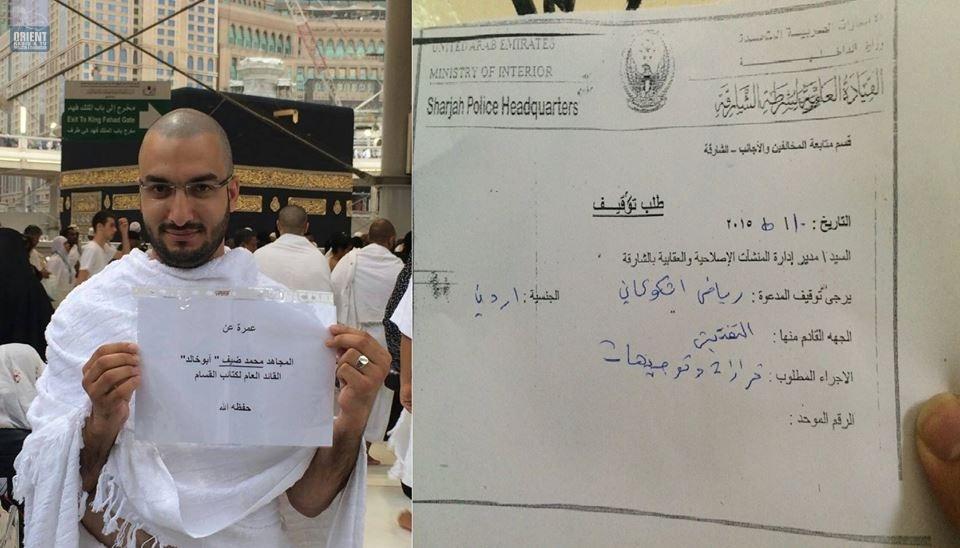 ORIENT
مخرج إلى باب الملك فهد
Exit To King Fahad Gate
عمرة عن
المجاهد محمد ضيف " أبو خالد"
القائد العام لكتائب القسام
حفظه الله
الامارات العربية المتحدة
وزارة الداخلية
القيادة العامة لشرطة الشارقة
UNITED ARAB EMIRATES
MINISTRY OF INTERIOR
Sharjah Police Headquarters
قسم متابعة المخالفين والأجانب – الشارقة
طلب توقيف
التاريخ : ٢٠١٥
السيد \ مدير إدارة المنشآت الإصلاحية والعقابية بالشارقة
يرجى توقيف المدعوة : رياض الجنسية :
الجهه القادم منها : التفتيش
الاجراء المطلوب :
الرقم الموحد :